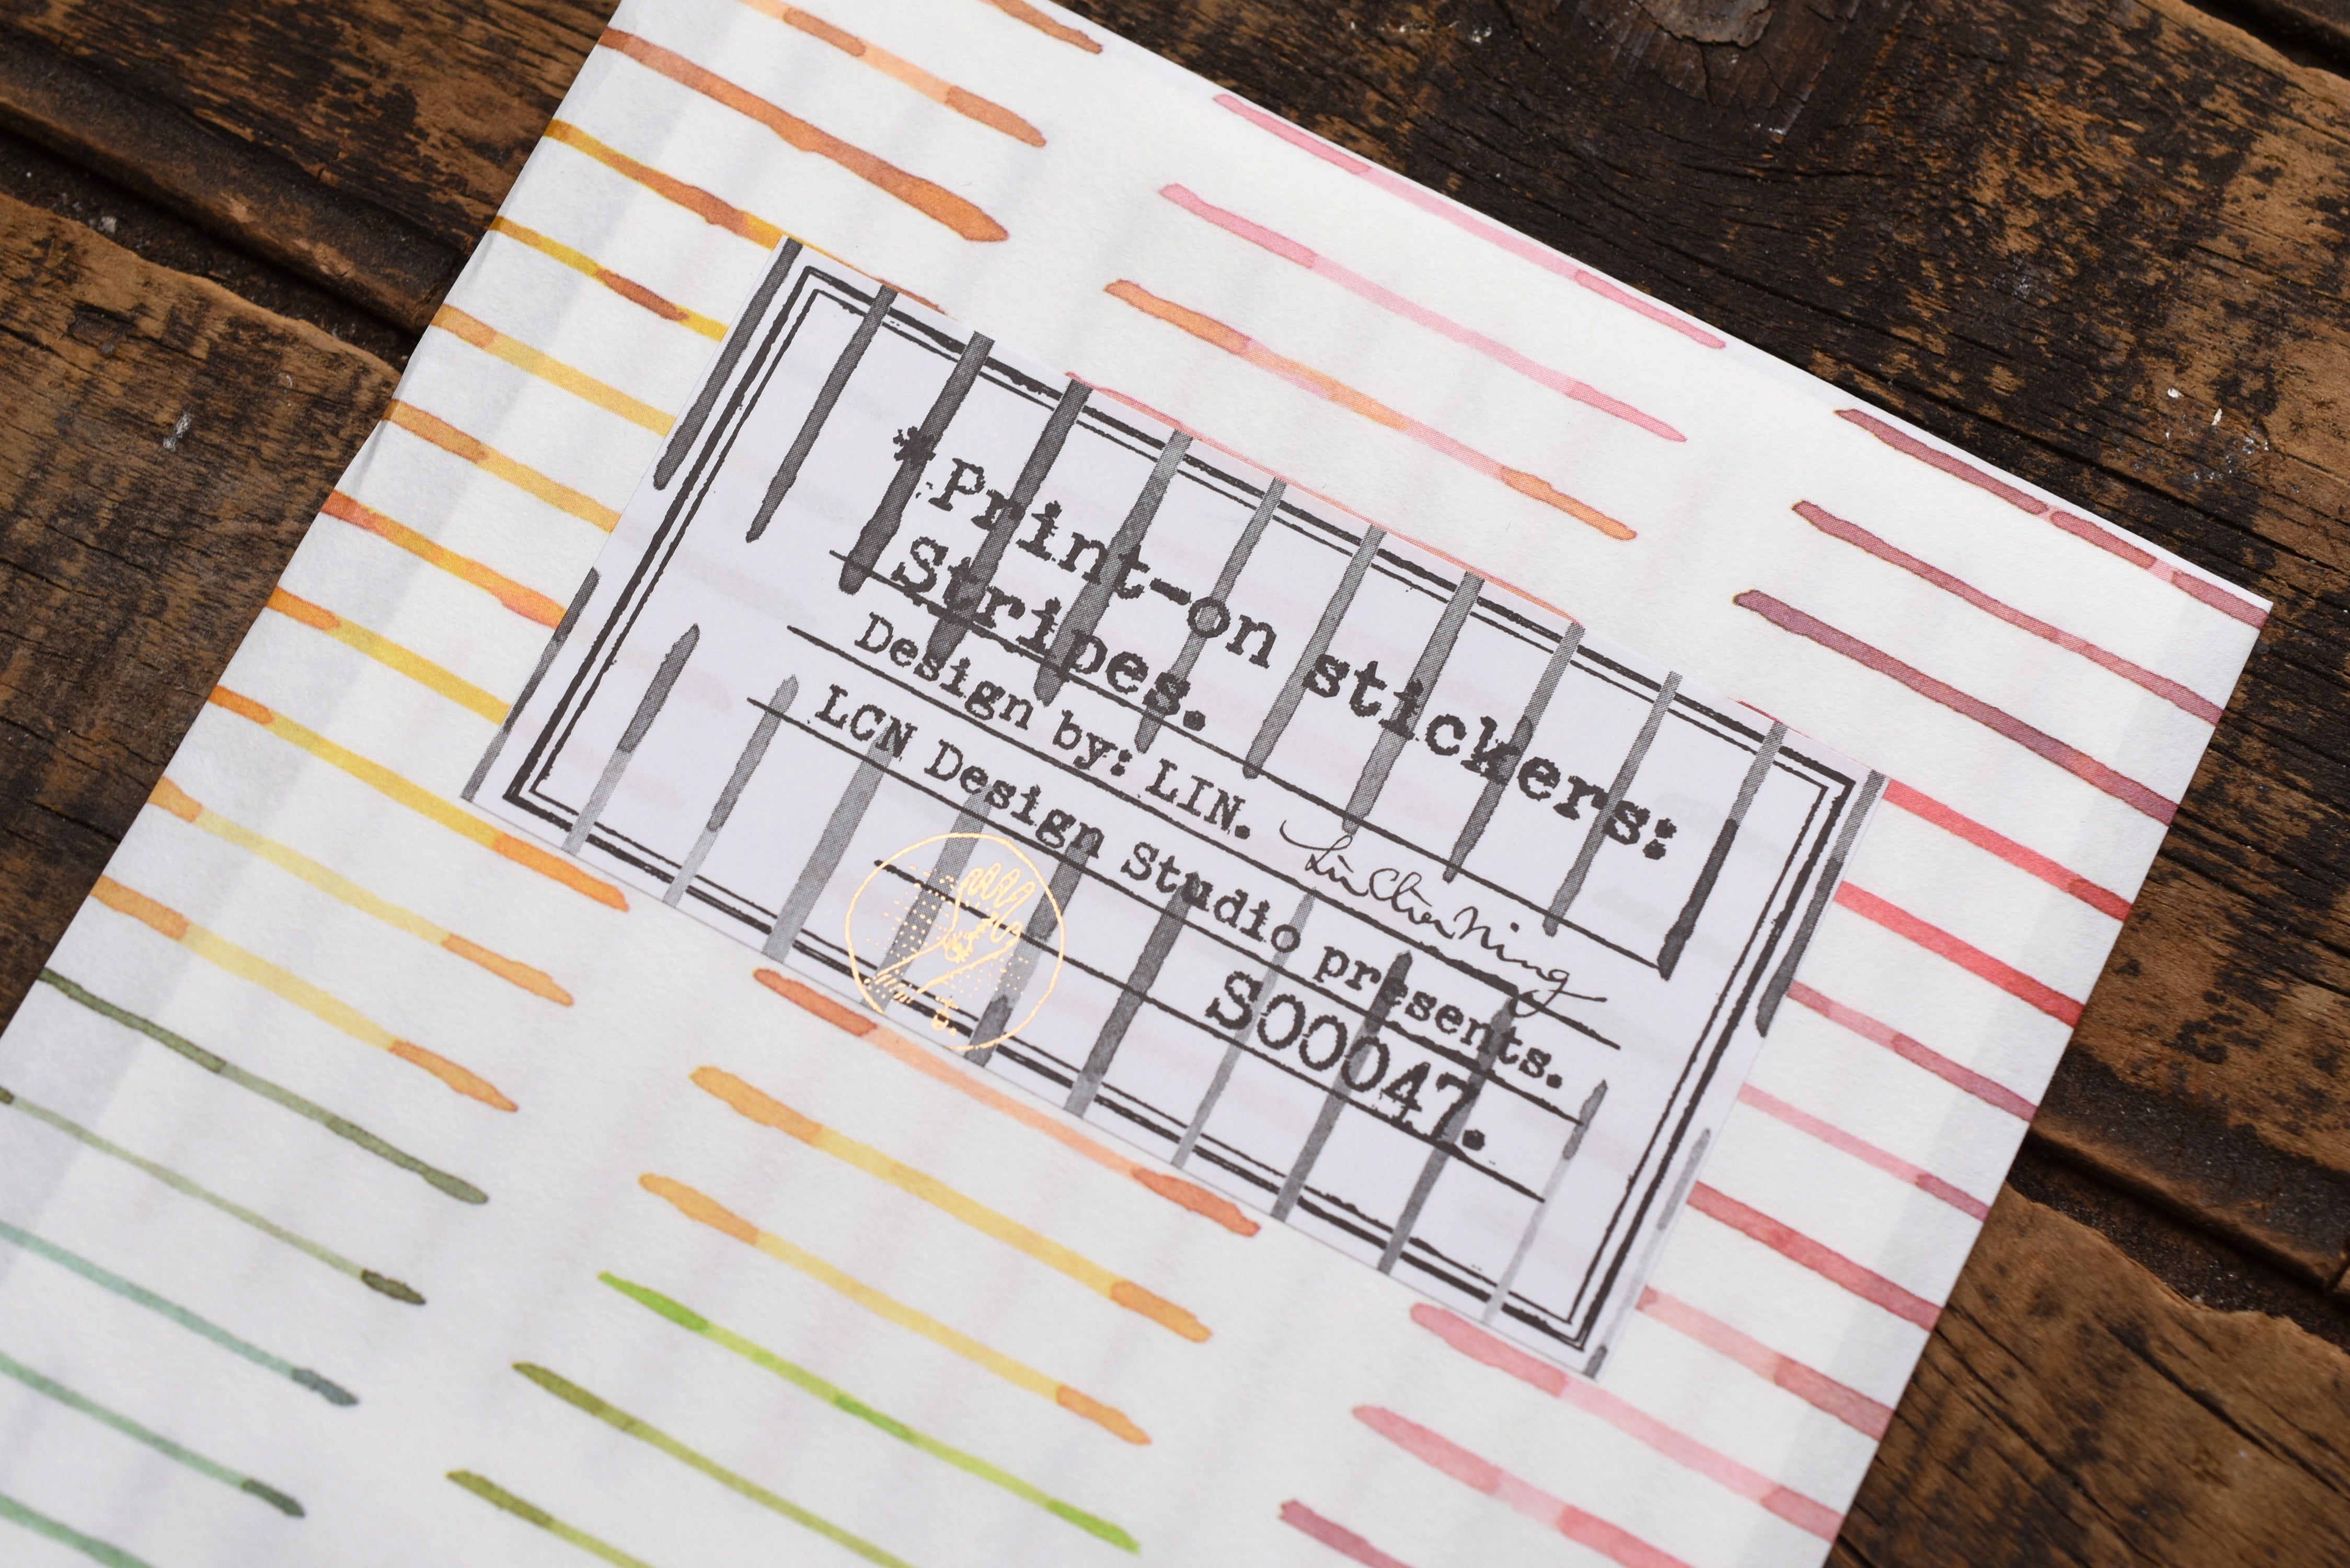 *Print-on stickers:
Stripes.
Design by: LIN. Lin Chia Ning
LCN Design Studio presents.
S00047.